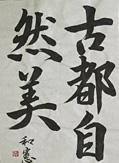 古都自
然美
和憲